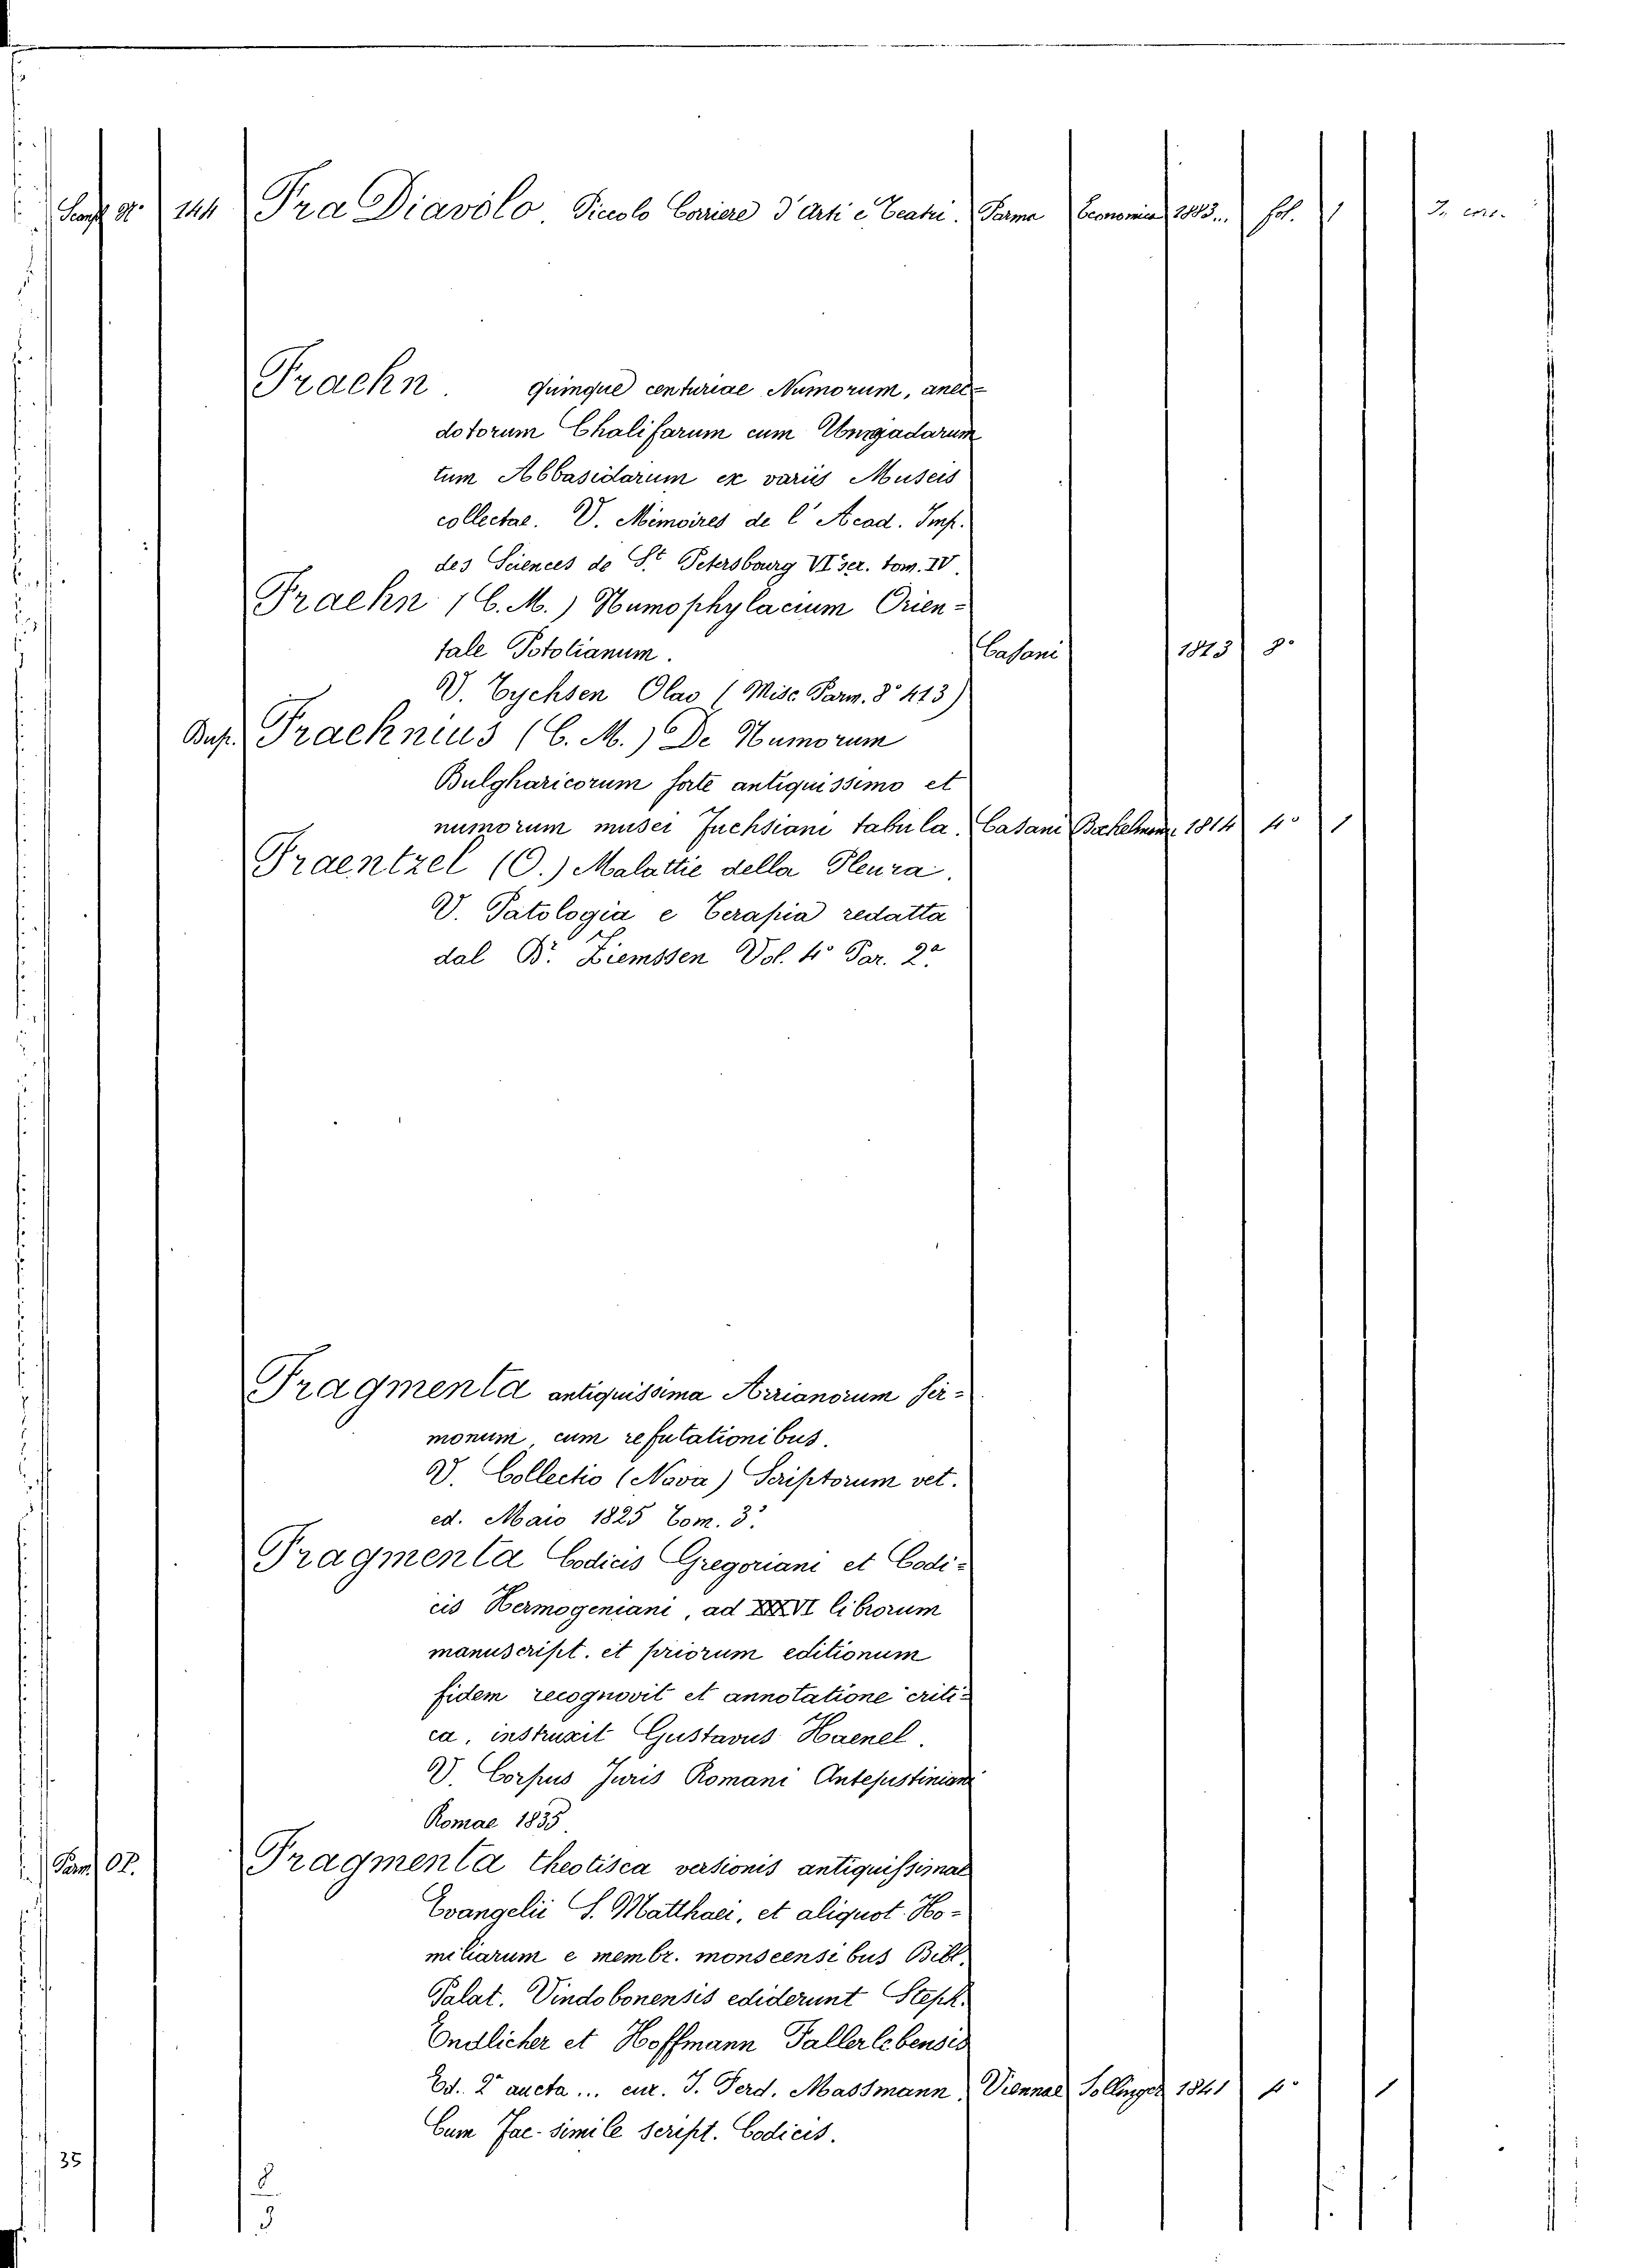 144 Fra Diavolo. Piccolo Corriere d'Arti e Teatri. Parma Economica 1883... fol. 1
Fraehn. quinque centuriae Numorum, anec-
dotorum Chalifarum cum
tum Abbasidarum ex variis Museis
collectae. V. Mémoires de l'Acad. Imp.
des Sciences de St. Petersbourg VI ser. tom. IV.
Fraehn (C. M.) Numophylacium Orien-
tale Pototianum. Casani 1813 8°
V. Tychsen Olao (Misc. Parm. 8° 413)
Dup. Fraehnius (C. M.) De Numorum
Bulgharicorum forte antiquissimo et
numorum musei Fuchsiani tabula. Casani 1814 4° 1
Fraentzel (O.) Malattie della Pleura.
V. Patologia e Terapia redatta
dal Dr. Ziemssen Vol. 4° Par. 2a.
Fragmenta antiquissima Arrianorum ser-
monum, cum refutationibus.
V. Collectio (Nova) Scriptorum vet.
ed. Maio 1825 Tom. 3°.
Fragmenta Codicis Gregoriani et Codi-
cis Hermogeniani, ad XXXVI librorum
manuscript. et priorum editionum
fidem recognovit et annotatione criti-
ca, instruxit Gustavus Haenel.
V. Corpus Juris Romani Antejustiniani
Romae 1835.
Parm. Fragmenta theotisca versionis antiquissimae
Evangelii S. Matthaei, et aliquot Ho-
miliarum e membr. monseensibus Bibl.
Palat. Vindobonensis ediderunt Steph.
Endlicher et Hoffmann Fallerlebensis
Ed. 2a aucta... cur. J. Ferd. Massmann. Viennae Sollinger 1841 4° 1
Cum Fac-simile script. Codicis.
35